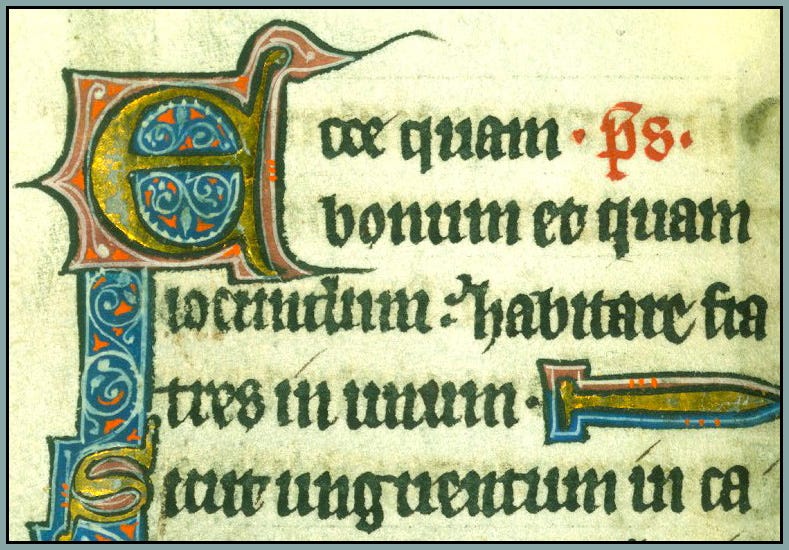 Ecce quam · p̄s ·
bonum et quam
iocundum : habitare fra
tres in unum ·
Sicut unguentum in ca